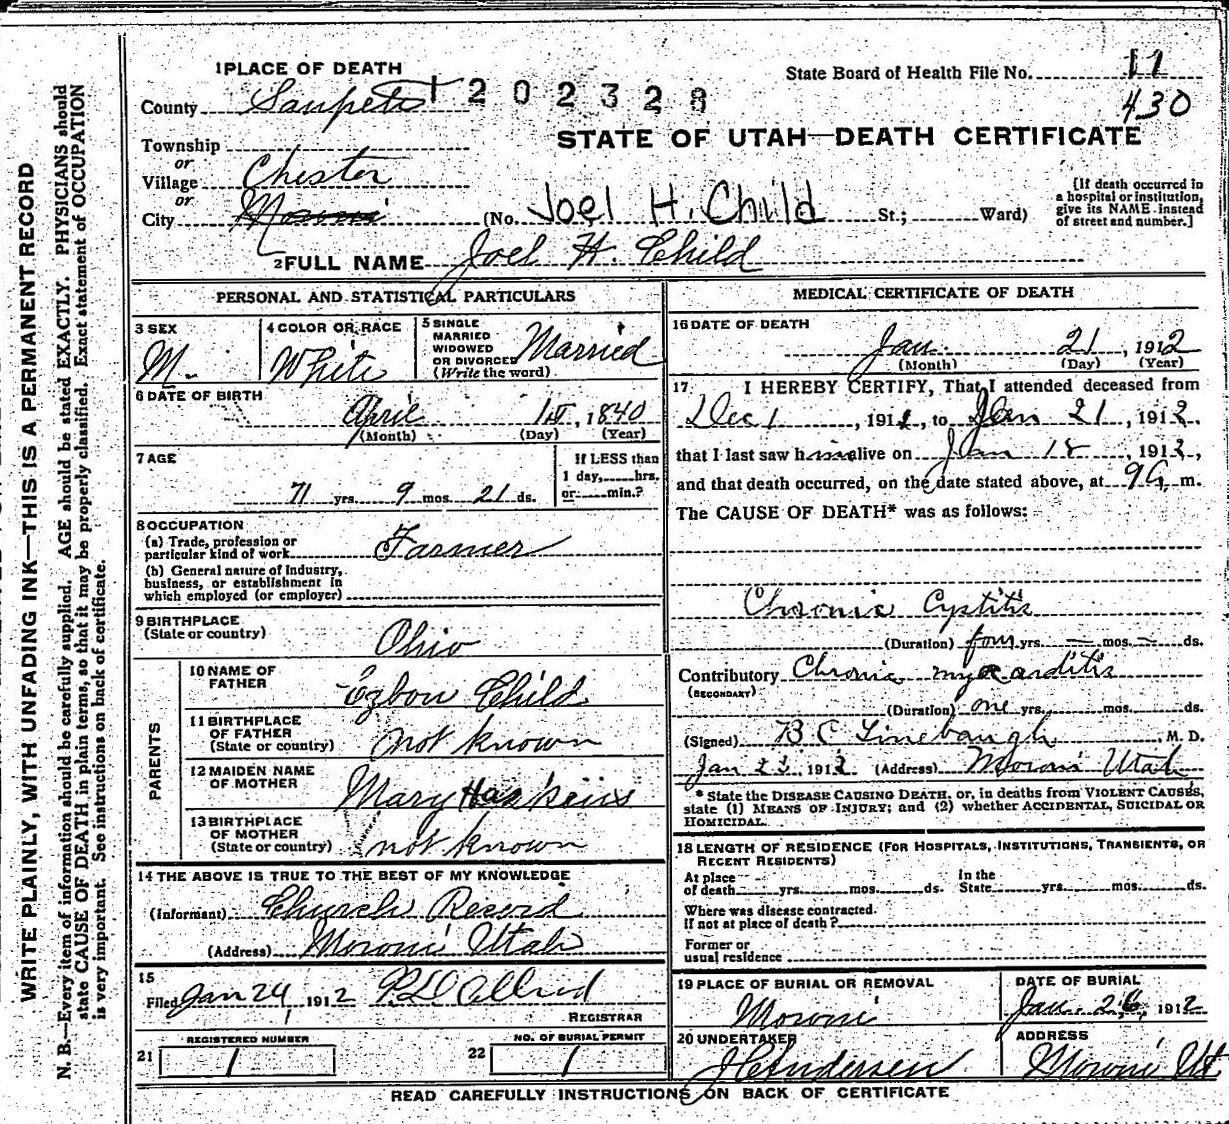 1 PLACE OF DEATH
County Sanpete
1202328
State Board of Health File No. 11
430
STATE OF UTAH—DEATH CERTIFICATE
Township
or
Village Chester
or
City Moroni
(No. Joel H. Child St.; Ward)
[If death occurred in a hospital or institution, give its NAME instead of street and number.]
2 FULL NAME Joel H. Child
PERSONAL AND STATISTICAL PARTICULARS
3 SEX
M.
4 COLOR OR RACE
White
5 SINGLE MARRIED WIDOWED OR DIVORCED (Write the word)
Married
6 DATE OF BIRTH
April 1st, 1840
(Month) (Day) (Year)
7 AGE
71 yrs. 9 mos. 21 ds.
If LESS than 1 day, hrs. or min.?
8 OCCUPATION
(a) Trade, profession or particular kind of work Farmer
(b) General nature of Industry, business, or establishment in which employed (or employer)
9 BIRTHPLACE
(State or country)
Ohio
PARENTS
10 NAME OF FATHER
Egbon Child
11 BIRTHPLACE OF FATHER (State or country)
not known
12 MAIDEN NAME OF MOTHER
Mary Haskins
13 BIRTHPLACE OF MOTHER (State or country)
not known
14 THE ABOVE IS TRUE TO THE BEST OF MY KNOWLEDGE
(Informant) Church Record
(Address) Moroni Utah
15
Filed Jan 24, 1912 Allred
REGISTRAR
21 REGISTERED NUMBER
1
22 NO. OF BURIAL PERMIT
1
MEDICAL CERTIFICATE OF DEATH
16 DATE OF DEATH
Jan. 21, 1912
(Month) (Day) (Year)
17 I HEREBY CERTIFY, That I attended deceased from
Dec 1, 1911, to Jan 21, 1912.
that I last saw him alive on Jan 18, 1912,
and that death occurred, on the date stated above, at 9 a. m.
The CAUSE OF DEATH* was as follows:
Chronic Cystitis
(Duration) four yrs. — mos. — ds.
Contributory Chronic myocarditis
(SECONDARY)
(Duration) one yrs. mos. ds.
(Signed) B C Linebaugh, M. D.
Jan 23, 1912 (Address) Moroni Utah
* State the DISEASE CAUSING DEATH, or, in deaths from VIOLENT CAUSES,
state (1) MEANS OF INJURY; and (2) whether ACCIDENTAL, SUICIDAL OR
HOMICIDAL.
18 LENGTH OF RESIDENCE (FOR HOSPITALS, INSTITUTIONS, TRANSIENTS, OR
RECENT RESIDENTS)
At place of death yrs. mos. ds. In the State yrs. mos. ds.
Where was disease contracted.
If not at place of death?
Former or
usual residence
19 PLACE OF BURIAL OR REMOVAL
Moroni
DATE OF BURIAL
Jan. 26, 1912
20 UNDERTAKER
J C Andersen
ADDRESS
Moroni Ut
READ CAREFULLY INSTRUCTIONS ON BACK OF CERTIFICATE
WRITE PLAINLY, WITH UNFADING INK—THIS IS A PERMANENT RECORD
N. B.—Every item of information should be carefully supplied. AGE should be stated EXACTLY. PHYSICIANS should
state CAUSE OF DEATH in plain terms, so that it may be properly classified. Exact statement of OCCUPATION
is very important. See instructions on back of certificate.